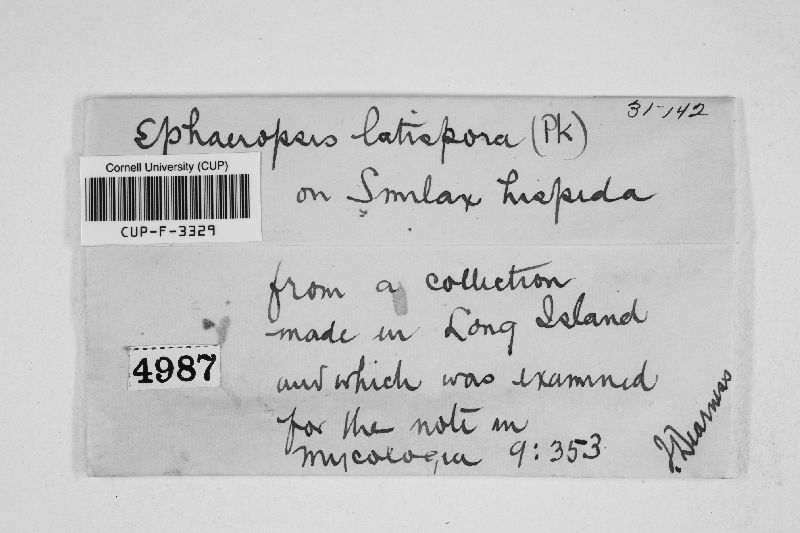 31-142
Sphaeropsis latispora (Pk)
Cornell University (CUP)
CUP-F-3329
on Smilax hispida
from a collection
made in Long Island
4987
and which was examined
for the note in
Mycologia 9:353
J. Dearness